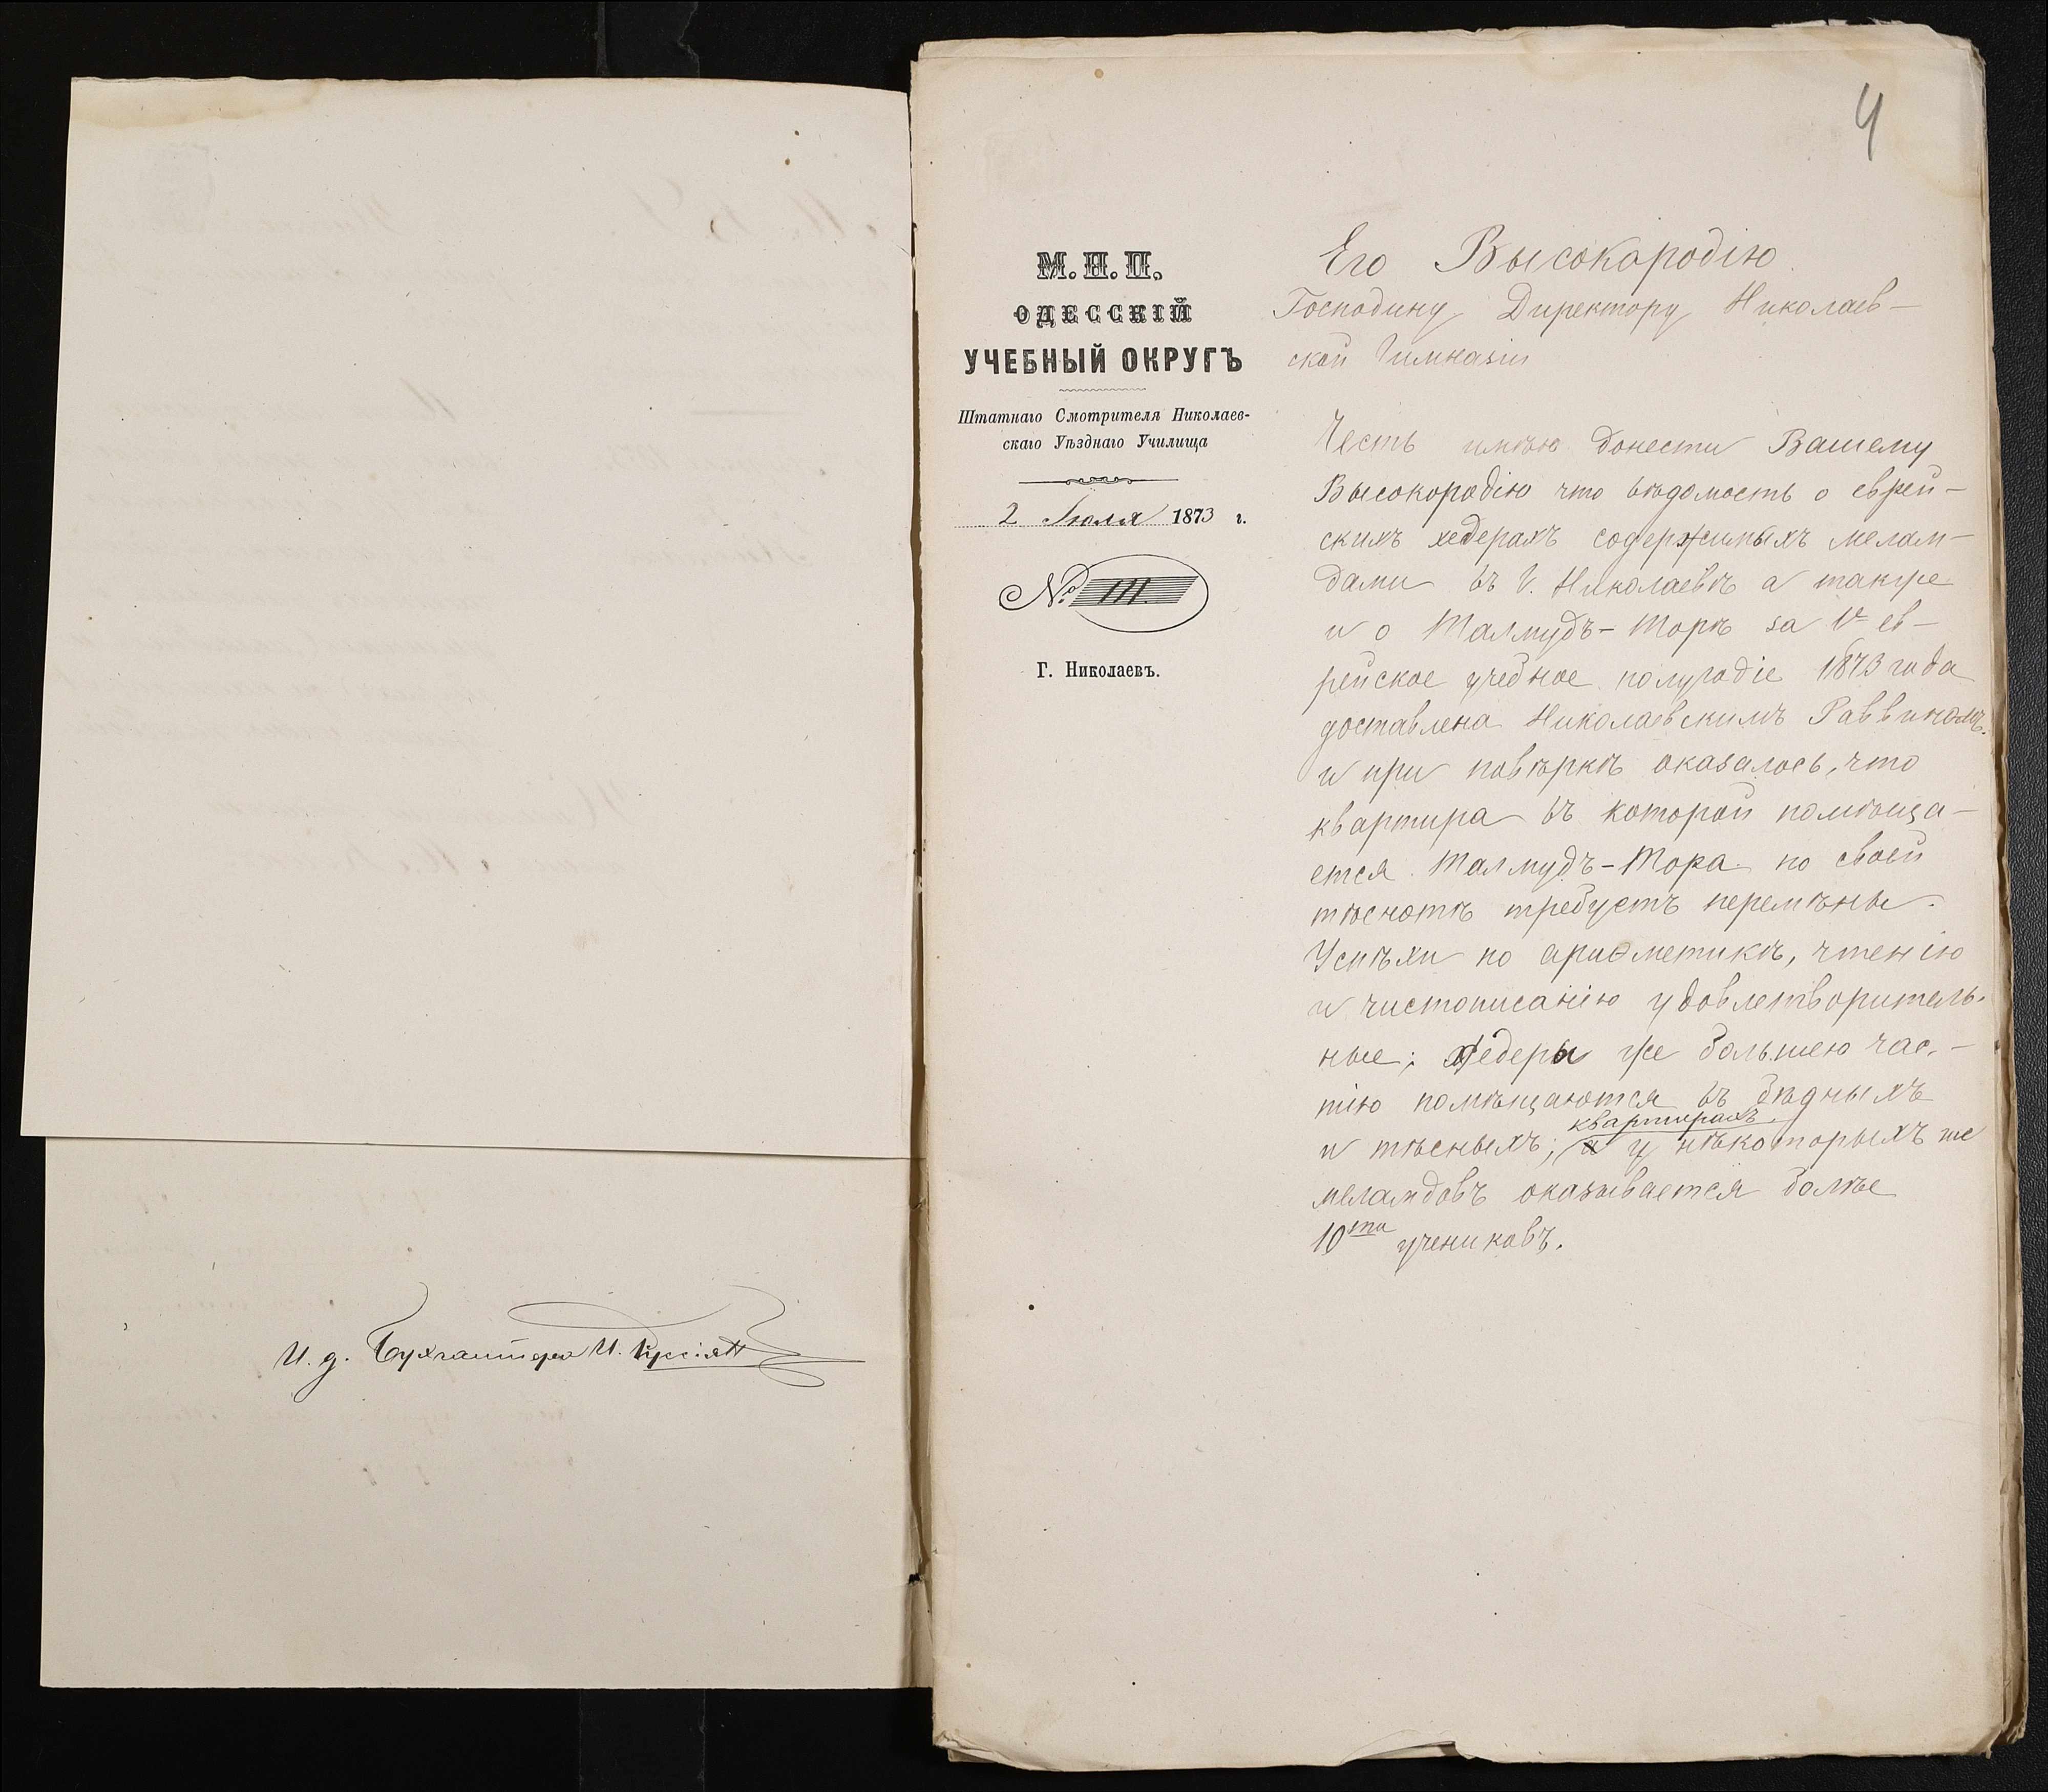 И. д. Бухгалтера И.
4
М. Н. П.
ОДЕССКІЙ
УЧЕБНЫЙ ОКРУГЪ
Штатнаго Смотрителя Николаев-
скаго Уѣзднаго Училища
2 Іюля 1873 г.
№ 111.
Г. Николаевъ.
Его Высокородію
Господину Директору Николаев-
ской Гимназіи
Честь имѣю донести Вашему
Высокородію что вѣдомость о еврей-
скихъ хедерахъ содержимыхъ мелам-
дами въ г. Николаевѣ а также
и о Талмудъ-Торѣ за 1е ев-
рейское учебное полугодіе 1873 года
доставлена Николаевскимъ Раввиномъ.
и при повѣркѣ оказалось, что
квартира въ которой помѣща-
ется Талмудъ-Тора по своей
тѣснотѣ требуетъ перемѣны.
Успѣхи по ариѳметикѣ, чтенію
и чистописанію удовлетворитель-
ные; хедеры же большею час-
тію помѣщаются въ бѣдныхъ
квартирахъ
и тѣсныхъ; и у нѣкоторыхъ же
меламдовъ оказывается болѣе
10ти учениковъ.